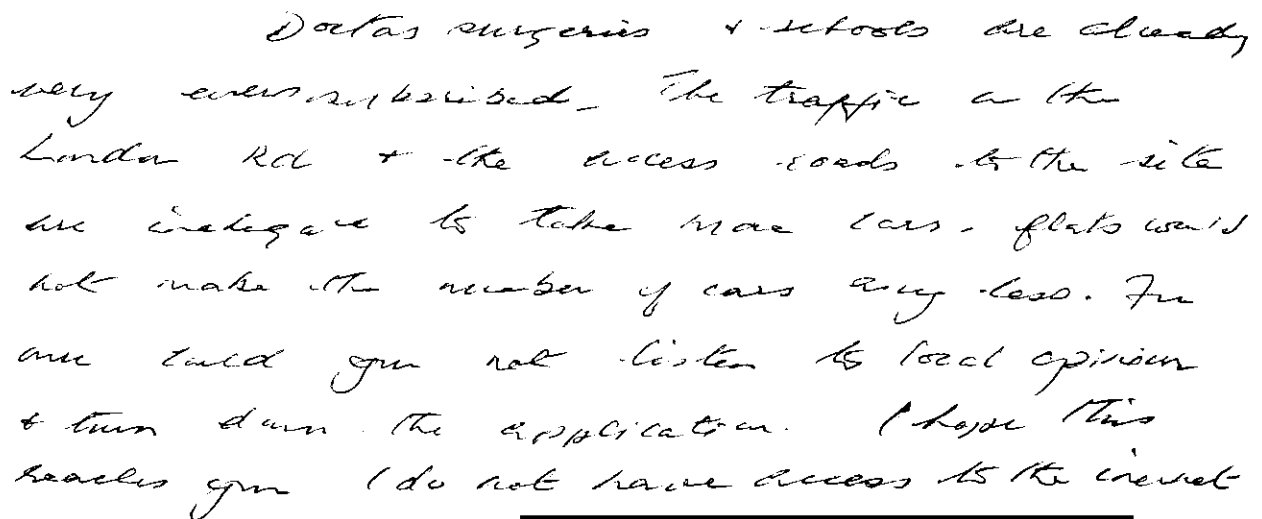 Doctors surgeries + schools are already
very oversubscribed. The traffic on the
London Rd + the access roads to the site
are inadequate to take more cars. flats would
not make the number of cars any less. For
once could you not listen to local opinion
+ turn down the application. I hope this
reaches you I do not have access to the internet